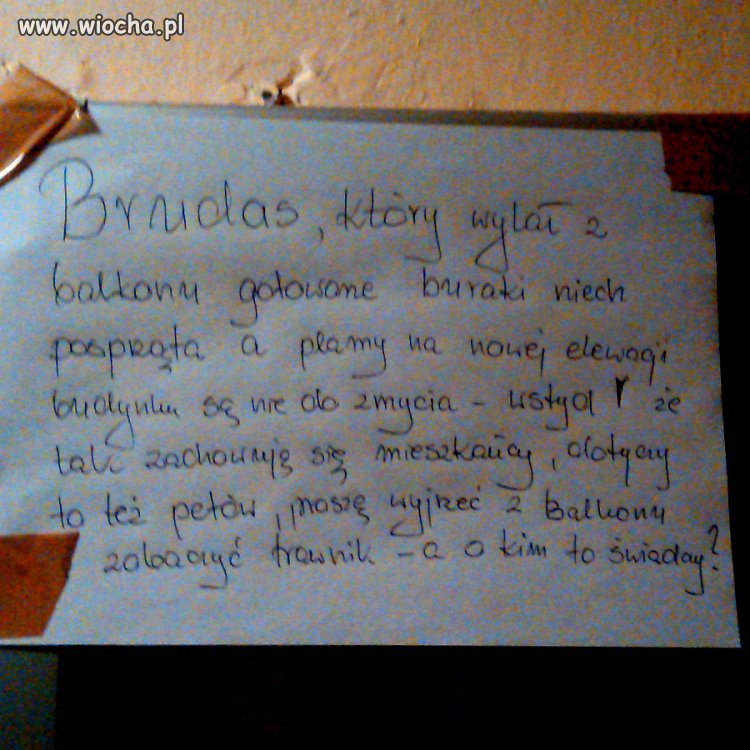 www.wiocha.pl
Brudas, który wylał z
balkonu gotowane buraki niech
posprząta a plamy na nowej elewacji
budynku są nie do zmycia - wstyd że
tak zachowują się mieszkańcy, dotyczy
to też petów, proszę wyjrzeć z Balkonu
zobaczyć trawnik - a o kim to świadczy?